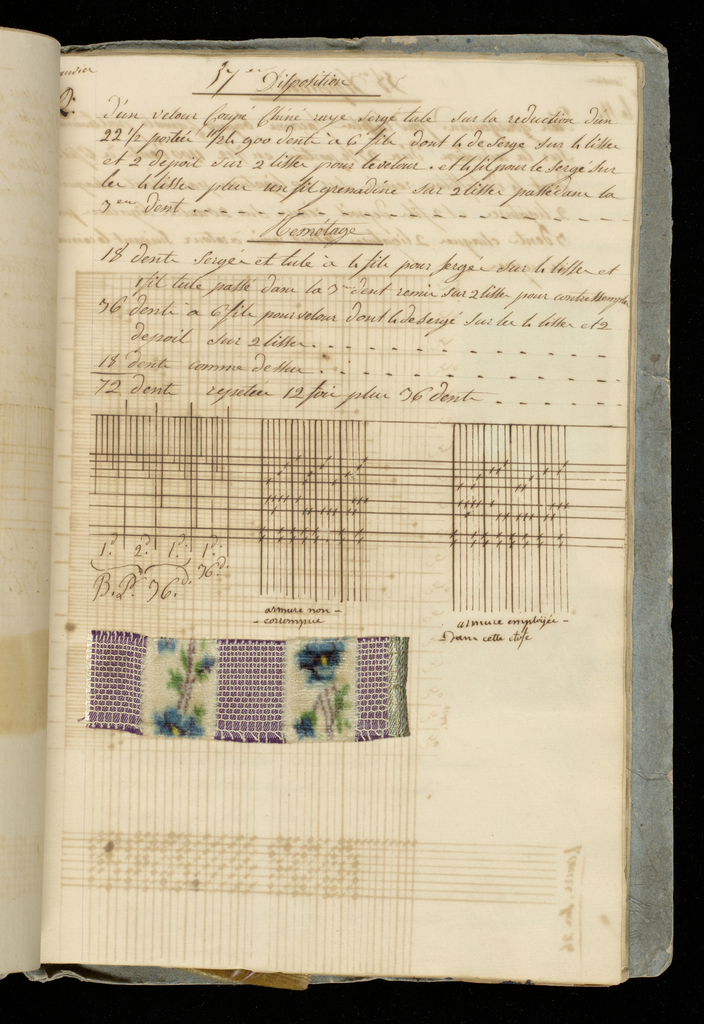 57em Disposition
D'un velour Coupé Chiné raye Sergé tule sur la reduction d'un
22 1/2 portée 1/2 900 dents à 6 fils dont 4 de serge sur 4 lisses
et 2 de poil sur 2 lisses pour le velour. et 4 fil pour le Sergé sur
les 4 lisses plus un fil grenadine sur 2 lisses passé dans la
3em dent
Remétage
18 dents Sergée et tule à 4 fils pour Sergée sur 4 lisses et
1 fil tule passé dans la 3me dent remis sur 2 lisses pour
36 dents à 6 fils pour velour dont 4 de sergé sur les 4 lisses et 2
de poil sur 2 lisses
18 dents comme dessus
72 dents repetée 12 fois plus 36 dents
1d. 2d. 1d. 1d.
B. 2d. 36d. 36d.
armure non -
- corrompue
armure employée -
Dans cette etofe